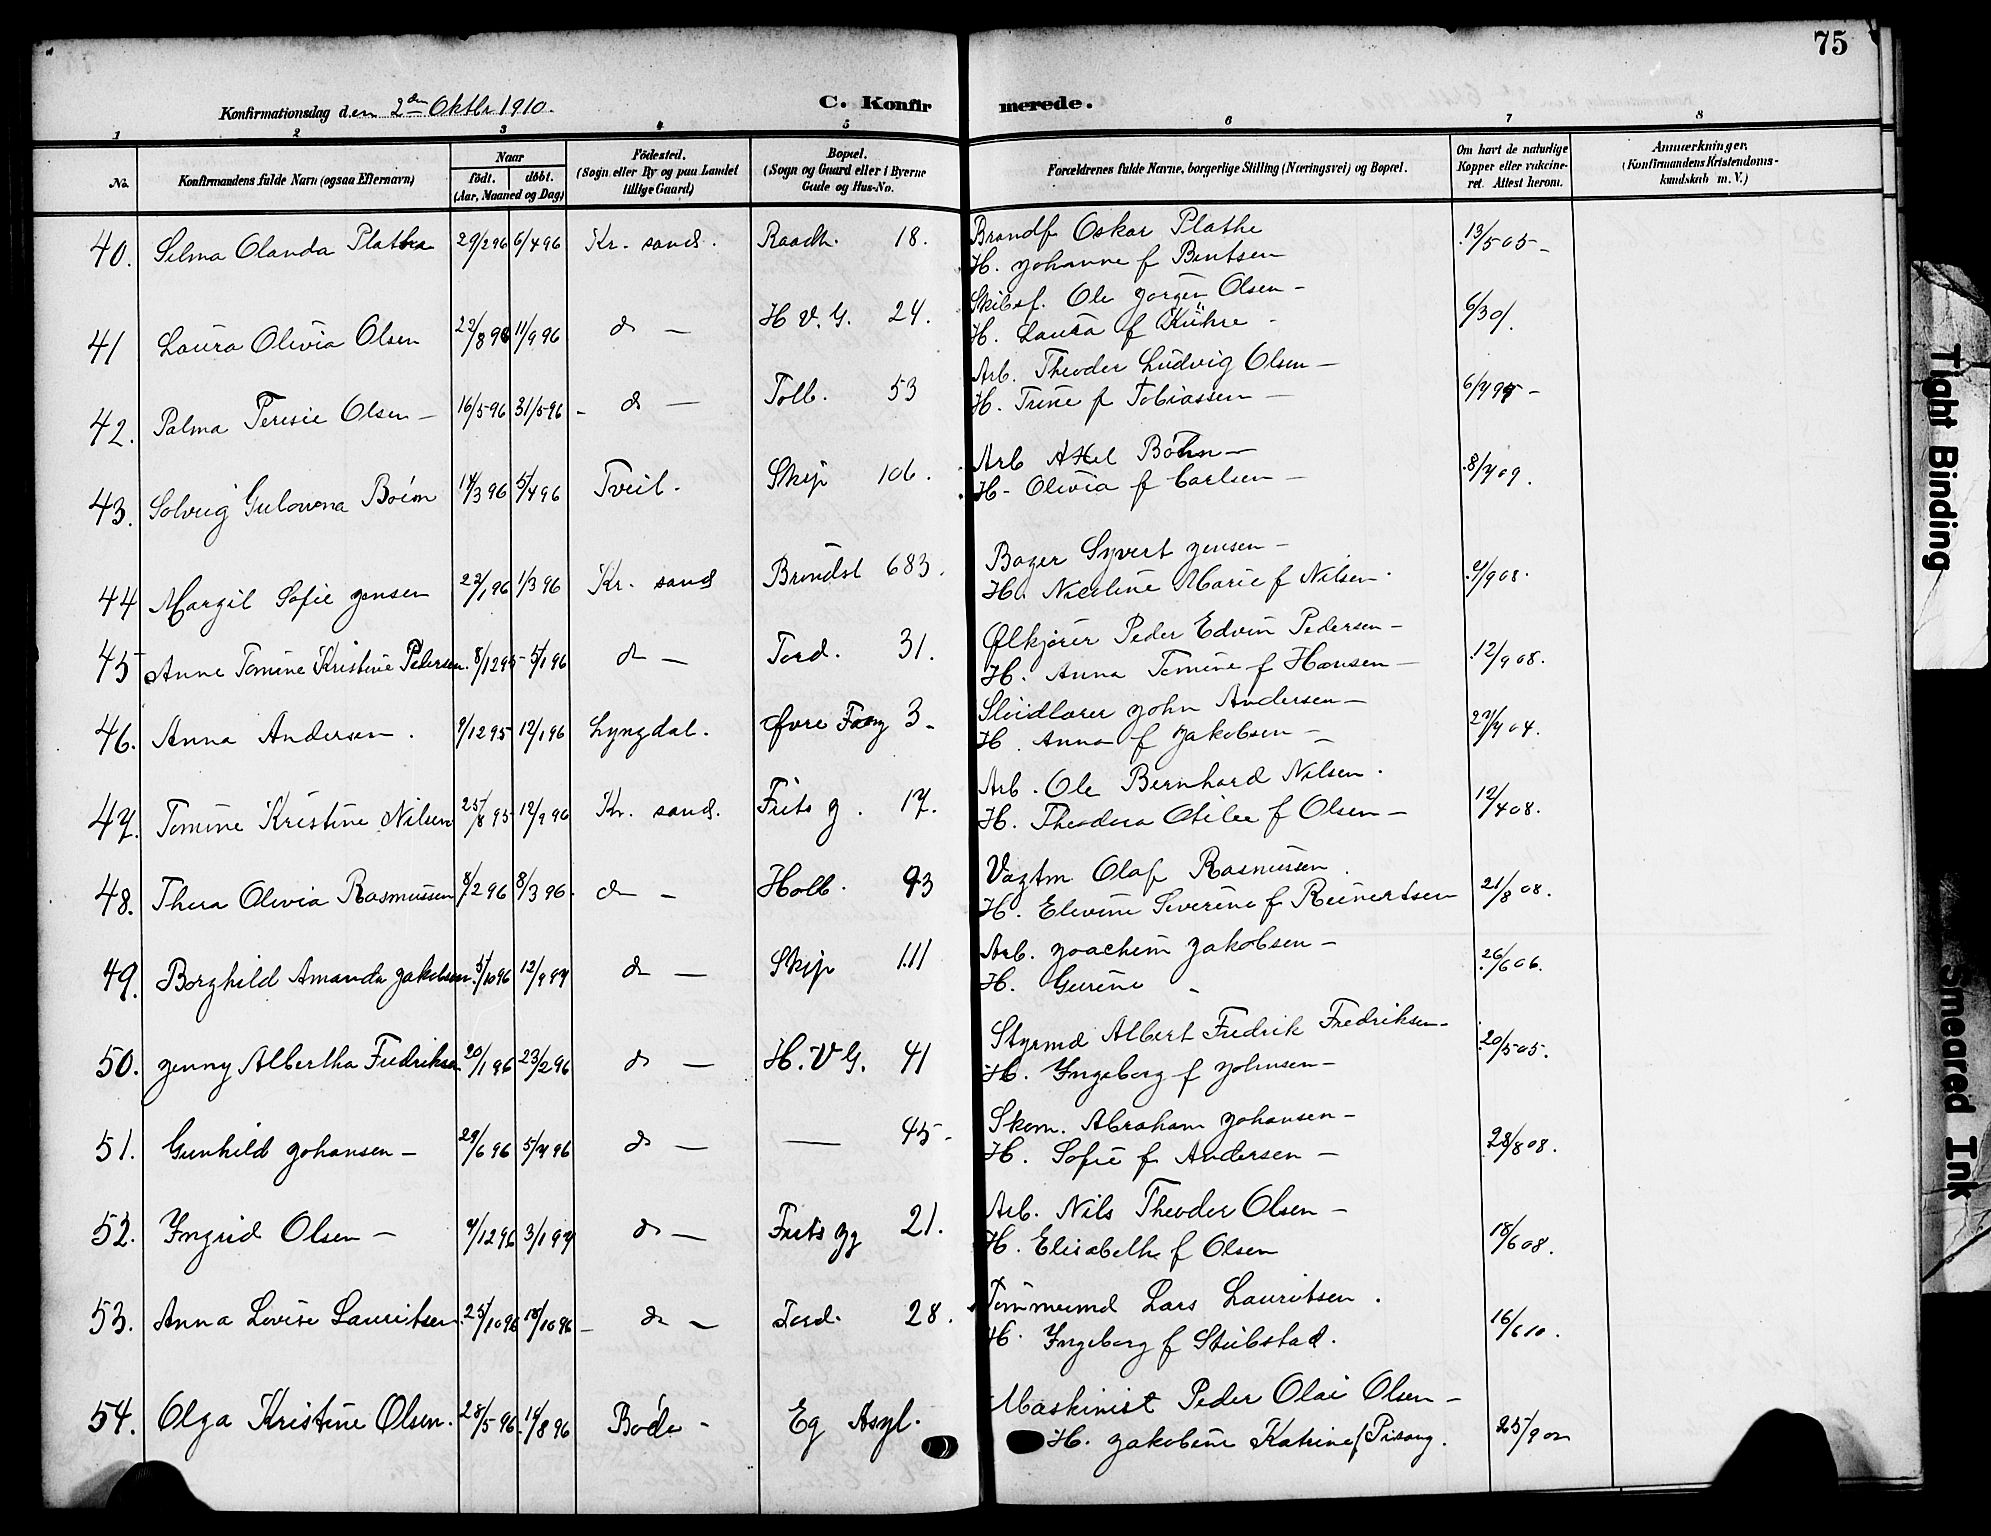 75
Konfirmationsdag den 2den Oktbr 1910.
C. Konfirmerede.
1 2 3 4 5 6 7 8
No.
Konfirmandens fulde Navn (ogsaa Efternavn)
Naar
födt. döbt.
(Aar, Maaned og Dag)
Födested.
(Sogn eller By og paa Landet
tillige Gaard)
Bopæl.
(Sogn og Gaard eller i Byerne
Gade og Hus-No.
Forældrenes fulde Navne, borgerlige Stilling (Næringsvei) og Bopæl.
Om havt de naturlige
Kopper eller vakcine-
ret. Attest herom.
Anmærkninger.
(Konfirmandens Kristendoms-
kundskab m. V.)
40. Selma Olanda Plathe 29/2 96 6/4 96 Kr. sand. Raadh. 18. Brandf Oskar Plathe 13/5 05 –
H. Johanne f Bentsen
41 Laura Olivia Olsen 22/8 96 11/9 96 do — H V. G. 24. Skibsf. Ole Jørgen Olsen – 6/3 01.
H. Laura f Kühre –
42. Palma Teresie Olsen – 16/5 96 31/5 96 – do — Tolb. 53 Arb. Theodor Ludvig Olsen –
H. Trine f Tobiassen —
43. Solveig 17/3 96 5/4 96 Tveit. Skip 106. Arb Axel
H- Olivia f Carlsen –
44 Margit Sofie Jensen 22/1 96 1/3 96 Kr. sand Bröndst 683. Bager Syvert Jensen –
H. Nicoline Marie f Nilsen.
45 Anne Tomine Kristine Pedersen. 8/12 95 – 5/1 96 do — Tord. 31. Ølkjører Peder Edvin Pedersen – 12/9 08.
H. Anna Tomine f Hansen –
46. Anna Andersen. 9/12 95 12/1 96 Lyngdal. Øvre 3 – John Andersen –
H. Anna f Jakobsen –
47. Tomine Kristine Nilsen 25/8 95 12/9 96 Kr. sand. Frits g. 17. Arb. Ole Bernhard Nilsen. 12/4 08.
H. Theodora Otilee f Olsen –
48. Thera Olivia Rasmussen 8/2 96 8/3 96. do – Holb. 93 Vagtm Olaf Rasmussen. 21/8 08.
H. Elevine Severine f Reinertsen
49. Borghild Amanda Jakobsen. 5/10 96 12/9 97 do — Skip 111 Arb. Joachim Jakobsen – 26/6 06.
H. Gurine –
50. Jenny Albertha Fredriksen. 20/1 96 23/2 96 do — H. V G. 41 Styrmd Albert Fredrik Fredriksen – 20/5 05.
H. Ingeborg f Johnsen –
51. Gunhild Johansen – 29/6 96 5/7 96 do — — 45 – Skom. Abraham Johansen – 28/8 08.
H. Sofie f Andersen –
52. Ingrid Olsen – 7/12 96 3/1 97 do — Frits gg 21. Arb. Nils Theodor Olsen – 18/6 08.
H. Elisabeth f Olsen
53. Anna Lovise Lauritsen. 18/10 96 – do – Tord. 28. Tømmermd Lars Lauritsen. 16/6 10.
H. Ingeborg f Stubstad.
54. Olga Kristine Olsen. 28/5 96. Bodø – Eg Asyl. Maskinist Peder Olai Olsen –
H. Jakobine Katrine f
Tight Binding
Smeared Ink